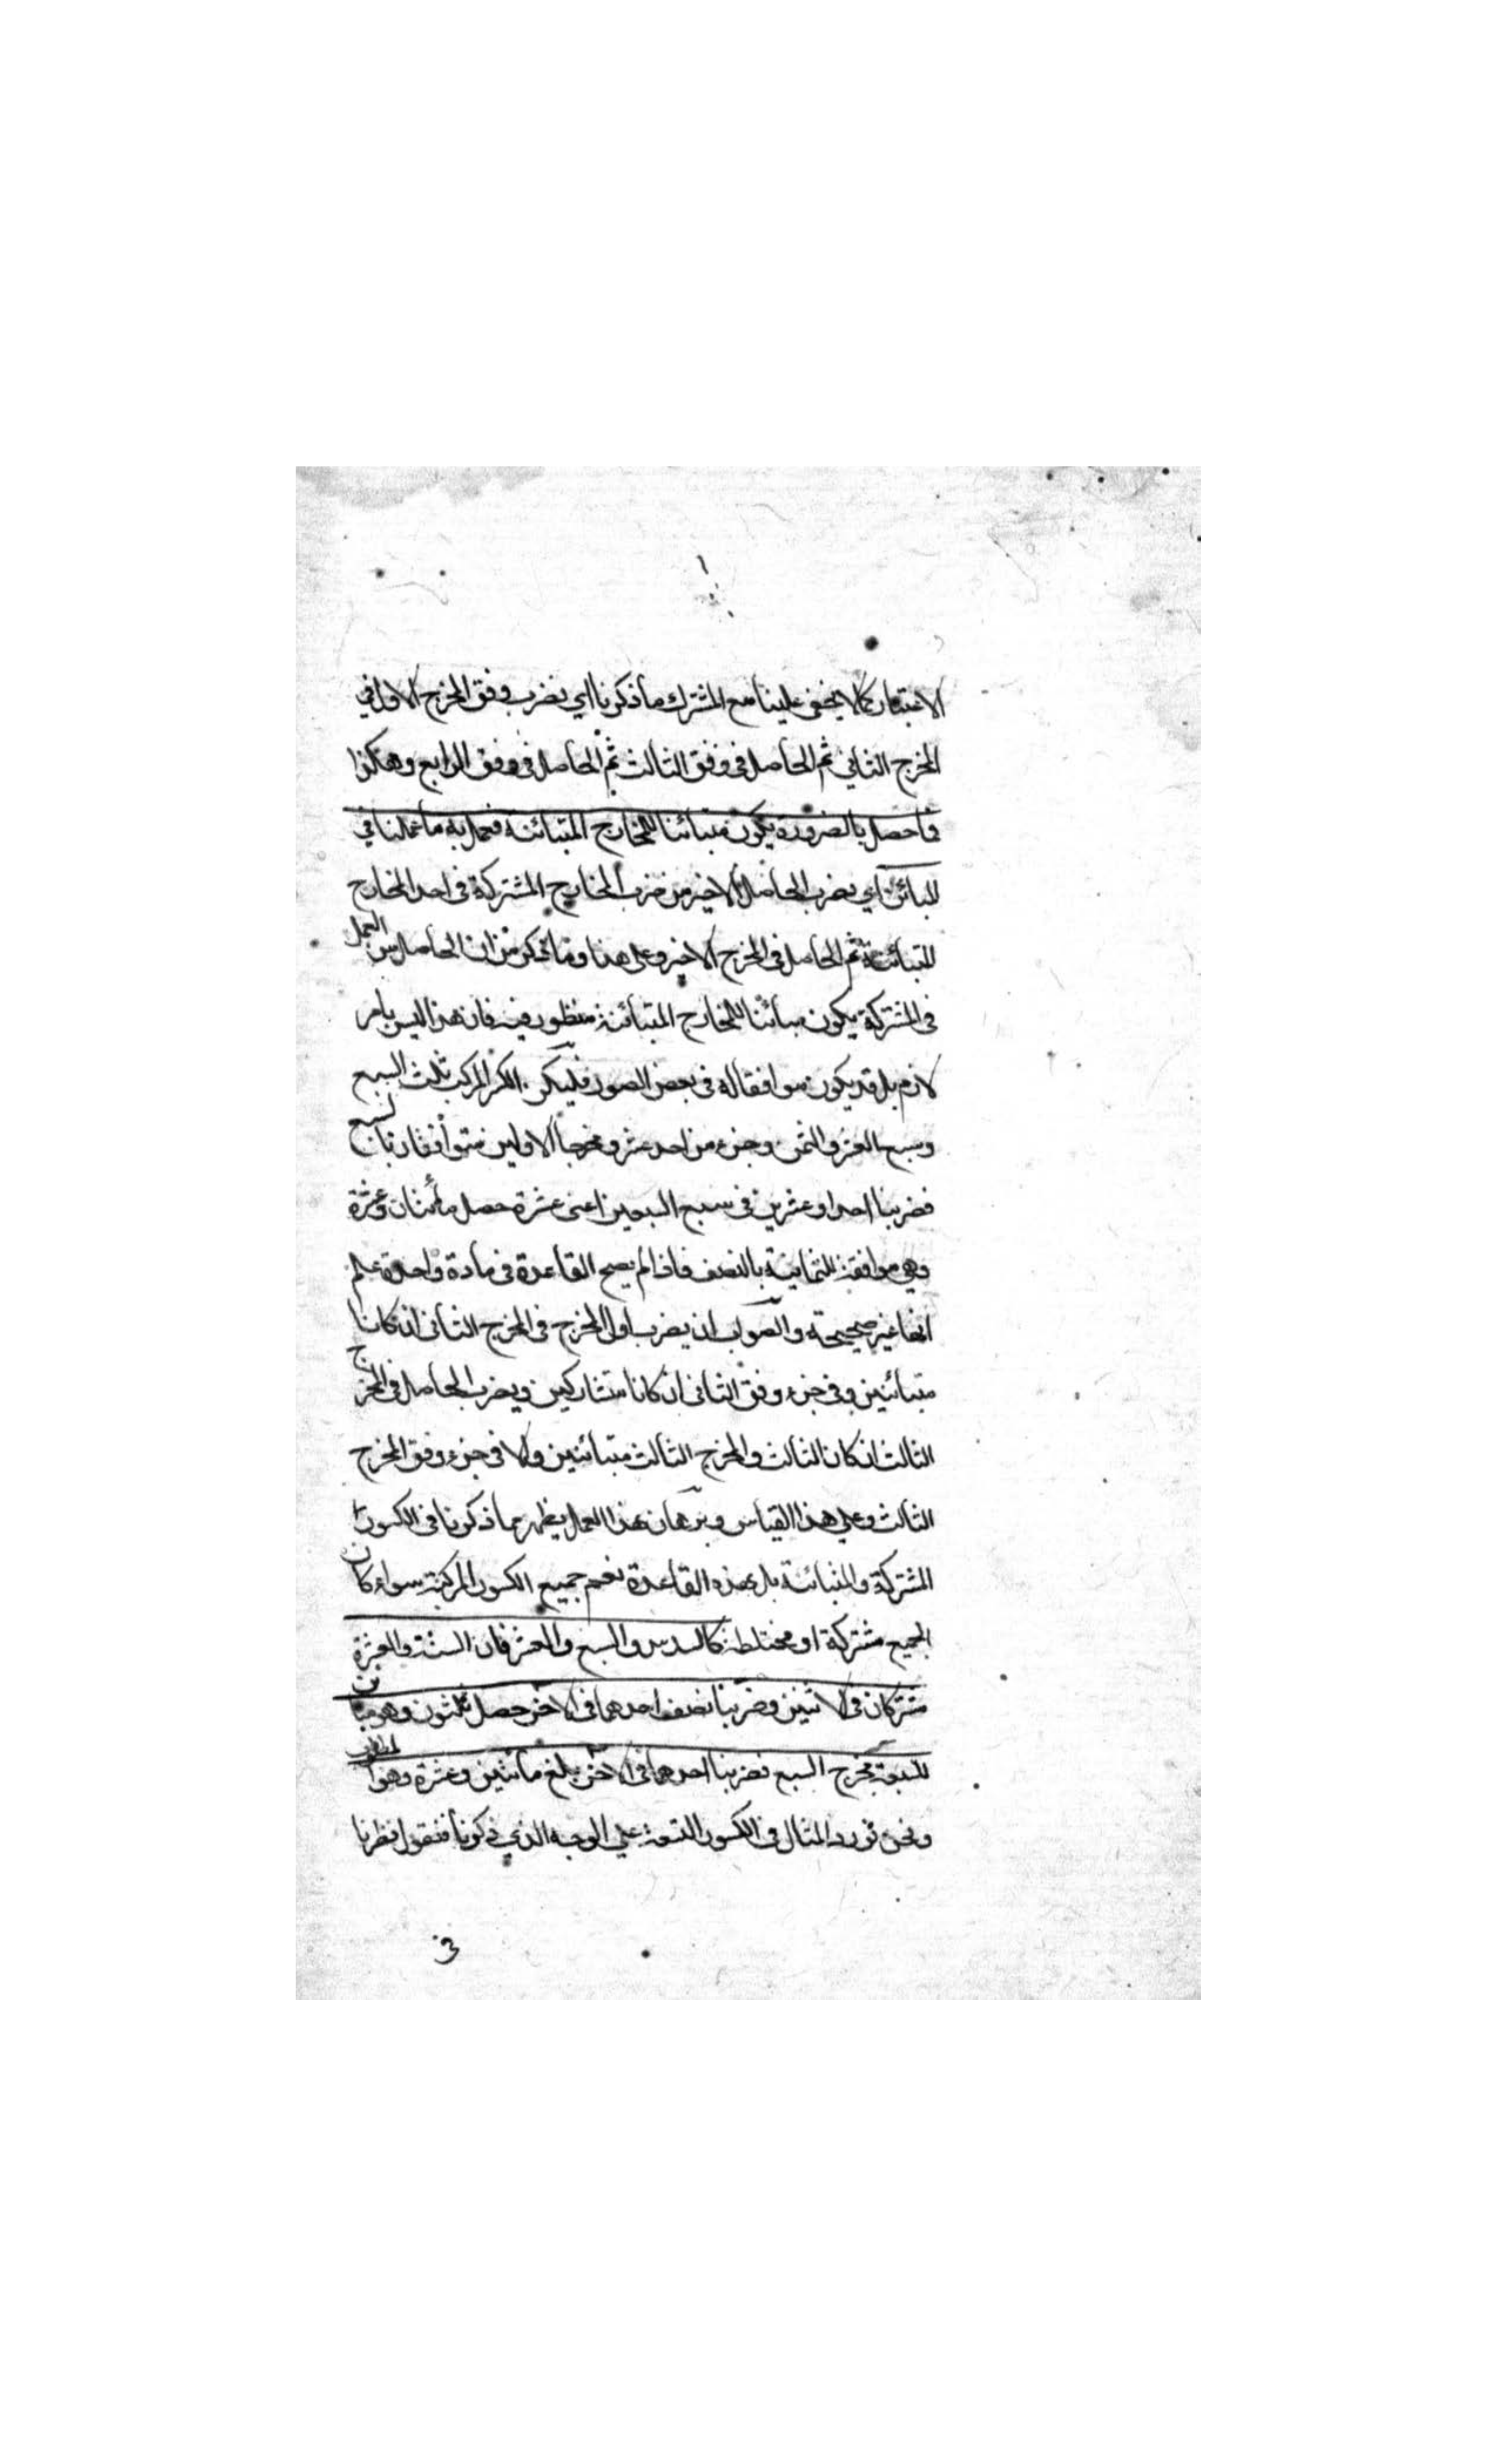 الاعتبار كما لا يخفى علينا مع المشترك ما ذكرنا اي نضرب وفق المخرج الاول في
المخرج الثاني ثم الحاصل في وفق الثالث ثم الحاصل في وفق الرابع وهكذا
فما حصل بالضرورة يكون متبائنا للمخارج المتبائنة فعمل به ما عملنا في
المبائن اي نضرب الحاصل الاخير من ضرب المخارج المشتركة في احد المخارج
المتبائنة ثم الحاصل في المخرج الاخر وعلى هذا وما ذكر من ان الحاصل من العمل
في المشتركة يكون مبائنا للمخارج المتبائنة منظور فيه فان هذا ليس بامر
لازم بل قد يكون موافقا له في بعض الصور فليكن الكسر المركب ثلث السبع
وسبع العشر والثمن وجزء من احد عشر ومخرجا الاولين متوافقان بالسبع
فضربنا احدا وعشرين في سبع السبعين اعنى عشرة حصل مأتان وعشرة
وهي موافقة للثمانية بالنصف فاذا لم يصح القاعدة في مادة واحدة علم
انها غير صحيحة والصواب ان يضرب اول المخرج في المخرج الثاني ان كانا
متبائنين وفي جزء وفق الثاني ان كانا متشاركين ويضرب الحاصل في المخرج
الثالث ان كان الثالث والمخرج الثالث متبائنين والا في جزء وفق المخرج
الثالث وعلى هذا القياس وبرهان هذا العمل يظهر مما ذكرنا في الكسور
المشتركة والمتبائنة بل هذه القاعدة تعم جميع الكسور المركبة سواء كان
الجميع مشتركة او مختلطة كالسدس والسبع والعشر فان الستة والعشرة
مشتركان في الاثنين وضربنا نصف احدهما في الاخر حصل ثلثون وهو مباين
للسبعة مخرج السبع فضربنا احدهما في الاخر بلغ مأتين وعشرة وهو المطلوب
ونحن نورد المثال في الكسور التسعة على الوجه الذي ذكرنا فنقول نظرنا
في